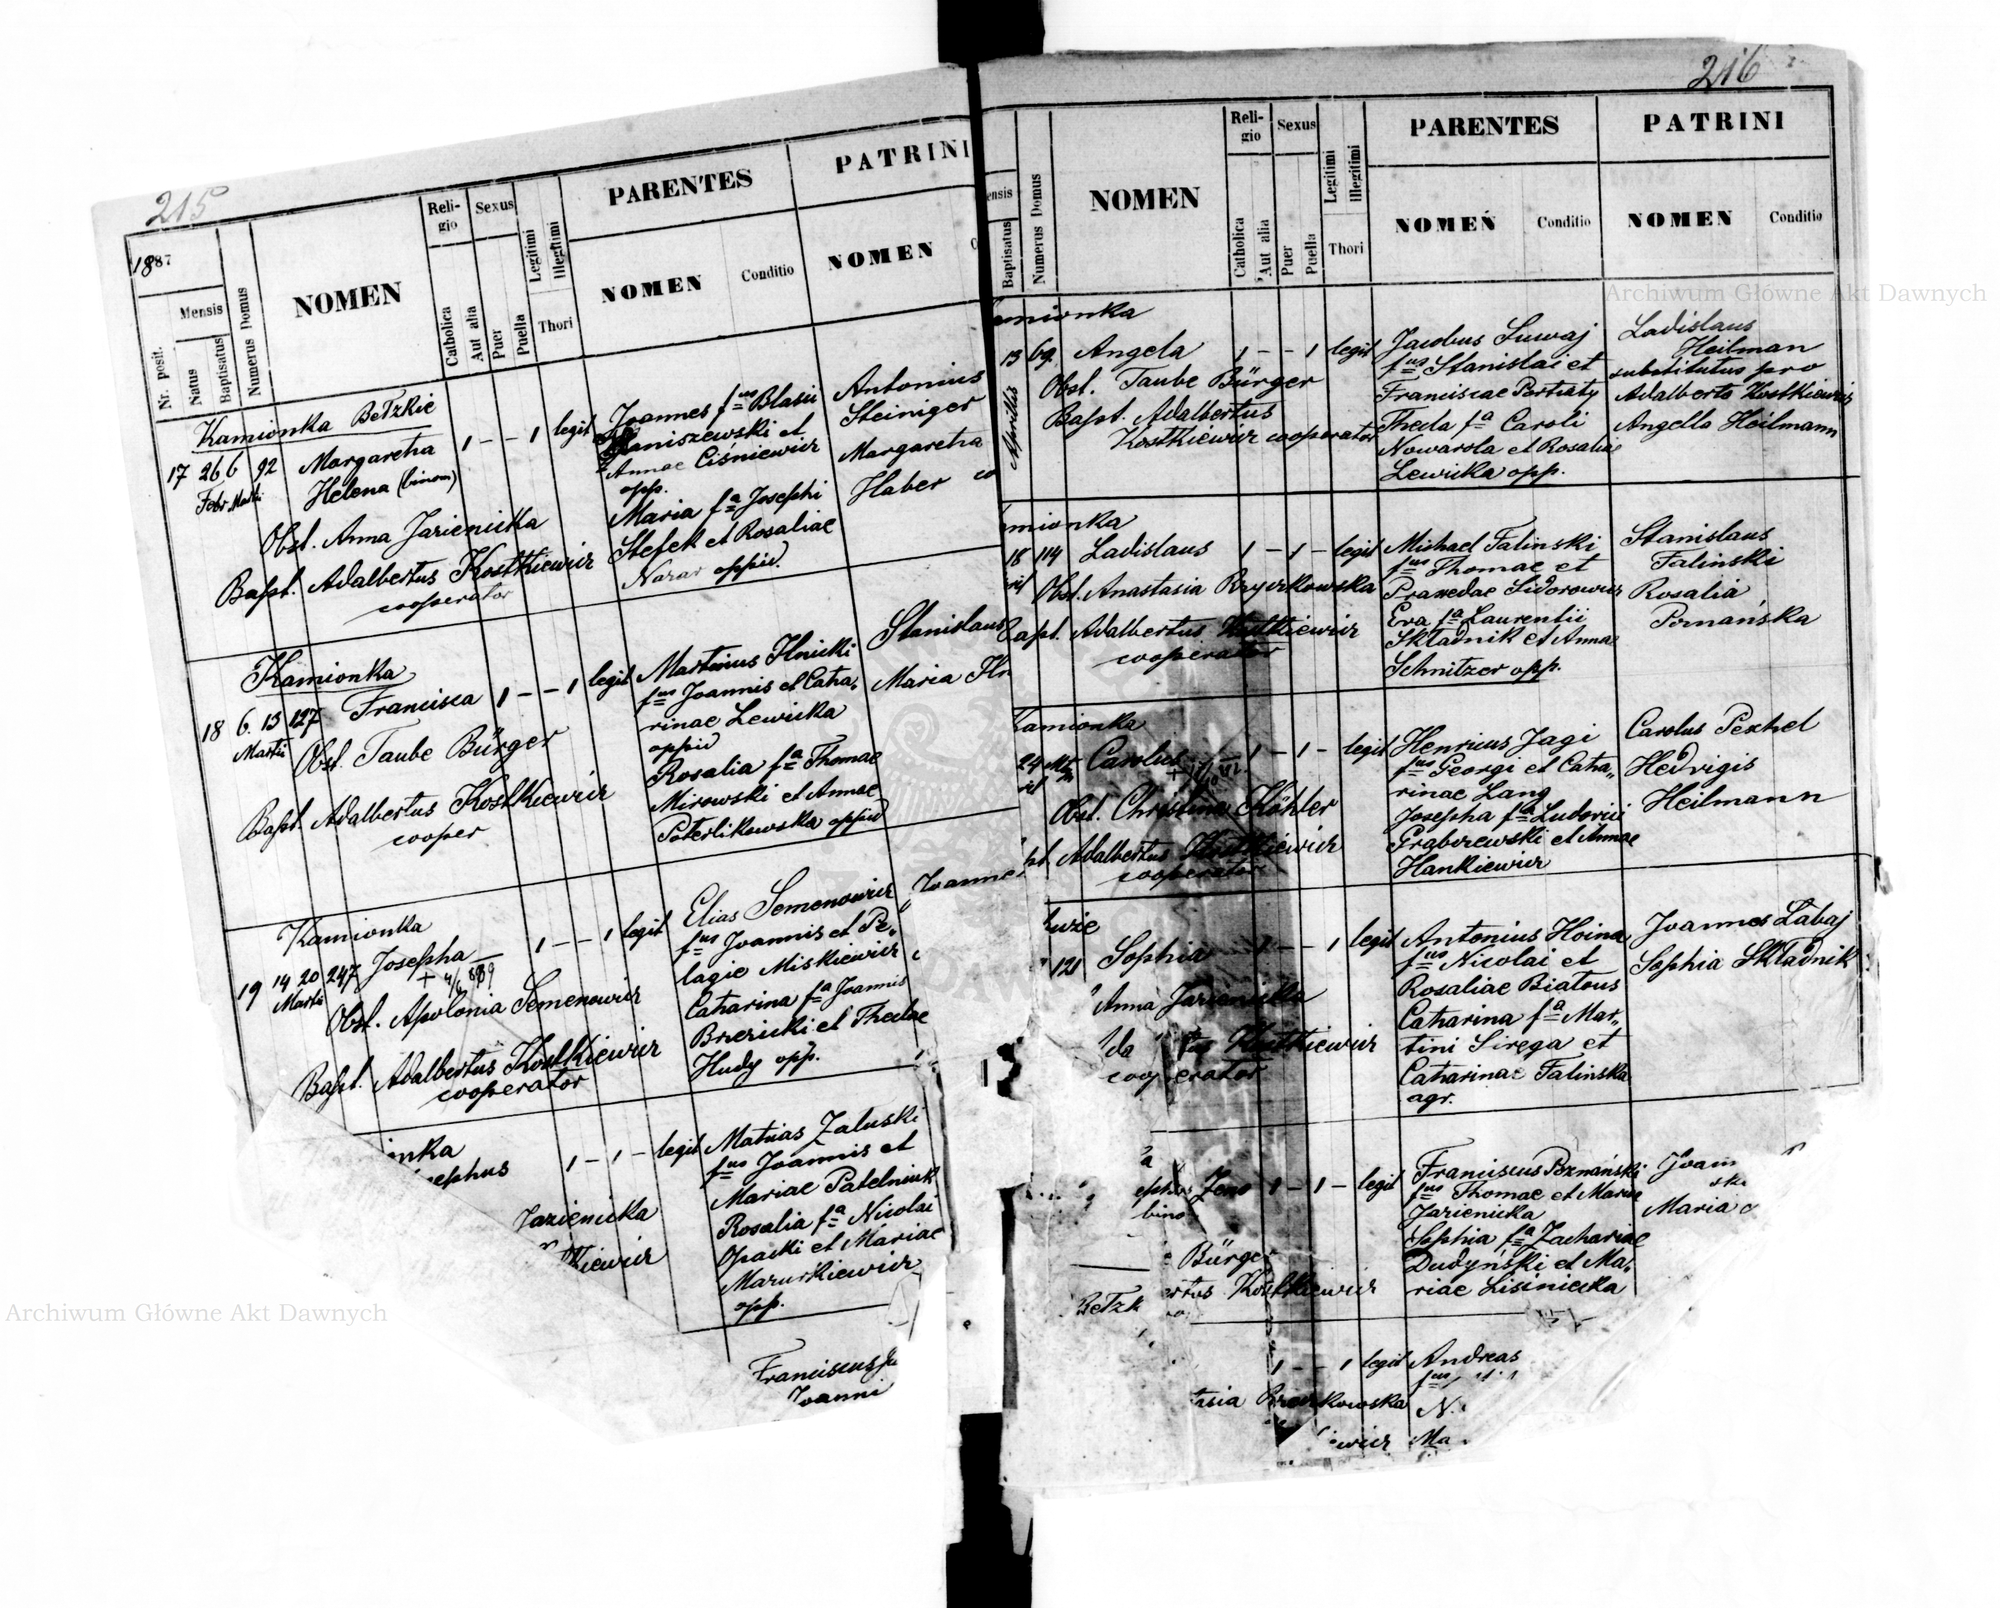 215
1887
Nr. posit.
Mensis
Natus
Baptisatus
Numerus Domus
NOMEN
Reli-
gio
Catholica
Aut alia
Sexus
Puer
Puella
Legitimi
Illegitimi
Thori
PARENTES
NOMEN
Conditio
PATRINI
NOMEN
Kamionka Bełzkie
17 26 6 92 Margaretha 1 – – 1 legit
Febr. Martii Helena (binom)
Obst. Anna Jazienicka
Bapt. Adalbertus Kostkiewicz
cooperator
Joannes fus Blasii
Janiszewski et
Annae Ciśniewicz
opp.
Maria fa Josephi
Stefek et Rosaliae
Nazar oppid.
Antonius
Steiniger
Margaretha
Haber
Kamionka
18 6. 13 127 Francisca 1 – – 1 legit
Martii
Obst. Taube Bürger
Bapt. Adalbertus Kostkiewicz
cooper
Martinus Ilnicki
fus Joannis et Catha-
rinae Lewicka
oppid
Rosalia fa Thomae
Mirowski et Annae
Poterlikowska oppid
Stanislaus
Maria
Kamionka
19 14 20 247 Josepha 1 – – 1 legit
Martii
Obst. Apolonia Semenowicz
Bapt. Adalbertus Kostkiewicz
cooperator
Elias Semenowicz
fus Joannis et Pe-
lagie Miskiewicz
Catharina fa Joannis
Brzezicki et Theclae
Hudy opp.
Joannes
onka
osephus 1 – 1 – legit
Jazienicka
kiewicz
Mathias Zaluski
fus Joannis et
Mariae Patelniuk
Rosalia fa Nicolai
Opacki et Mariae
Mazurkiewicz
opp.
Franciscus
Joanni
216
ensis
Baptisatus
Numerus Domus
NOMEN
Reli-
gio
Catholica
Aut alia
Sexus
Puer
Puella
Legitimi
Illegitimi
Thori
PARENTES
NOMEN
Conditio
PATRINI
NOMEN
Conditio
mionka
13 69 Angela 1 – – 1 legit
Aprilis
Obst. Taube Bürger
Bapt. Adalbertus
Kostkiewicz cooperator
Jacobus Suwaj
fus Stanislai et
Franciscae
Thecla fa Caroli
Nowarola et Rosaliae
Lewicka opp.
Ladislaus
Heilman
substitutus pro
Adalberto Kostkiewicz
Angella Heilmann
mionka
18 114 Ladislaus 1 – 1 – legit
Obst. Anastasia Bryczkowska
Bapt. Adalbertus Kostkiewicz
cooperator
Michael Falinski
fus Thomae et
Praxedae Sidorowicz
Eva fa Laurentii
Składnik et Annae
Schnitzer opp.
Stanislaus
Falinski
Rosalia
Poznańska
Kamionka
24 Carolus 1 – 1 – legit
Obst. Christina Köhler
pt. Adalbertus Kostkiewicz
cooperator
Henricus Jagi
fus Georgi et Catha-
rinae Lang
Josepha fa Ludovici
Grabrzewski et Annae
Hankiewicz
Carolus Pechel
Hedvigis
Heilmann
121 Sophia 1 – – 1 legit
Anna Jazienicka
Kostkiewicz
cooperator
Antonius Hoina
fus Nicolai et
Rosaliae Białous
Catharina fa Mar-
tini Sirega et
Catharinae Falinska
agr.
Joannes Labaj
Sophia Składnik
1 – 1 – legit
bino
Bürger
ertus Kostkiewicz
Bełzk
Franciscus Poznański
fus Thomae et Mariae
Jazienicka
Sophia fa Zachariae
Dudyński et Ma-
riae Lisiniecka
Joann
Maria
1 – – 1 legit
Andreas
fus
asia Bryczkowska
ewicz
Ma
Archiwum Główne Akt Dawnych
Archiwum Główne Akt Dawnych